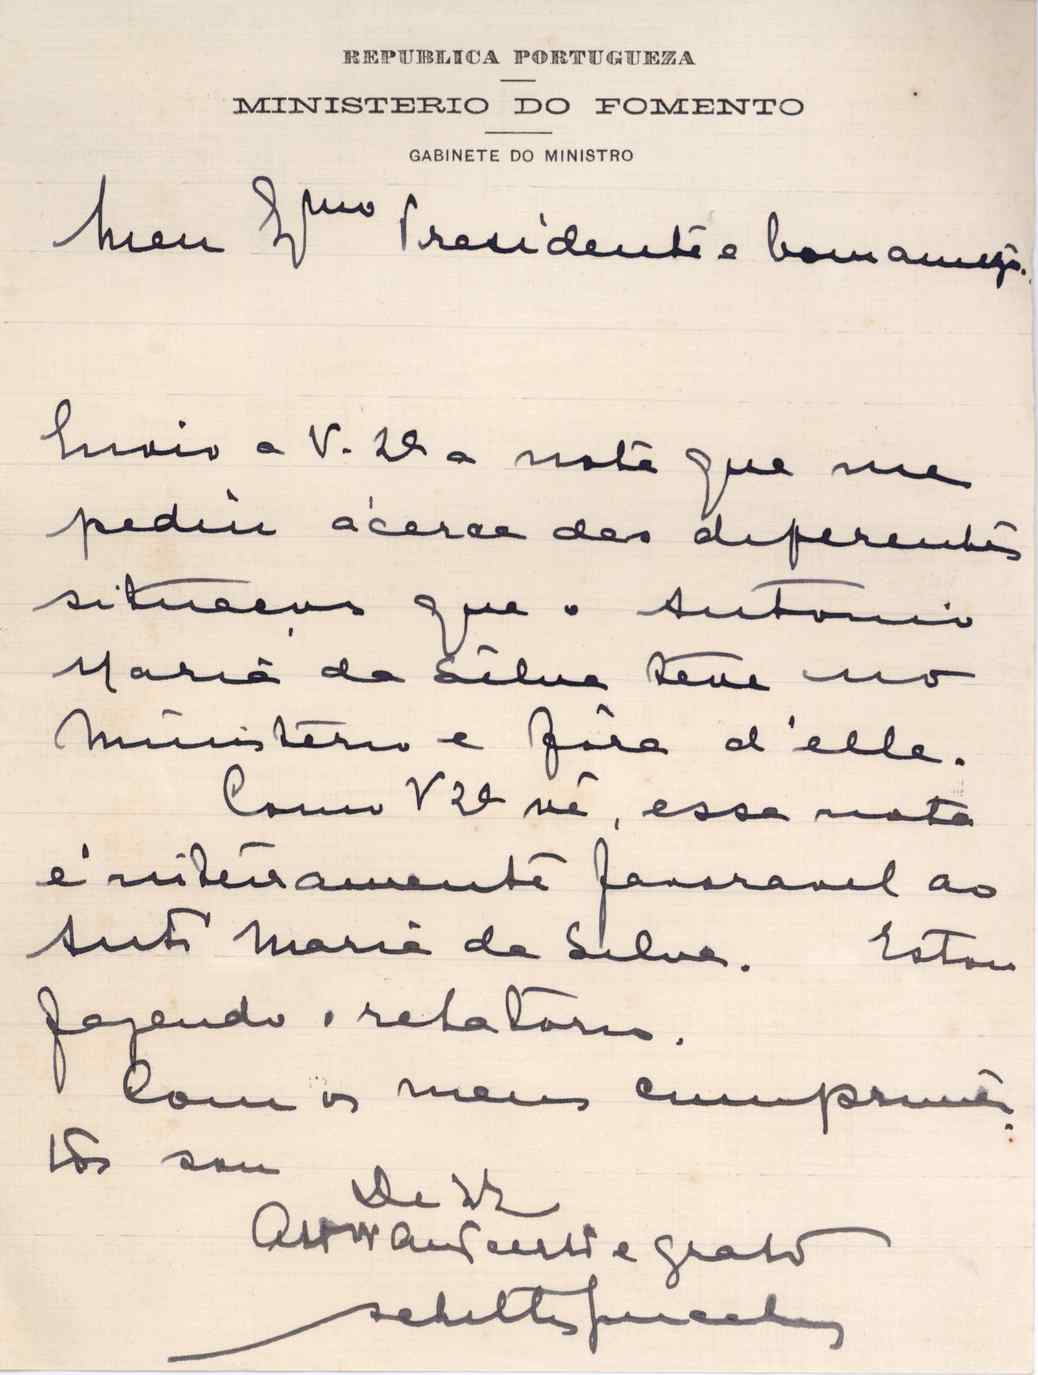 REPUBLICA PORTUGUEZA
MINISTERIO DO FOMENTO
GABINETE DO MINISTRO
Meu Exmo Presidente e bom amigo.
Envio a V. Exa a nota que me
pediu ácerca das diferentes
situações que o Antonio
Maria da Silva teve no
Ministerio e fóra d'elle.
Como V Exa vê, essa nota
é inteiramente favoravel ao
Antº Maria da Silva. Estou
fazendo o relatorio.
Com os meus cumprimen-
tos sou
De V. Exa
e grato